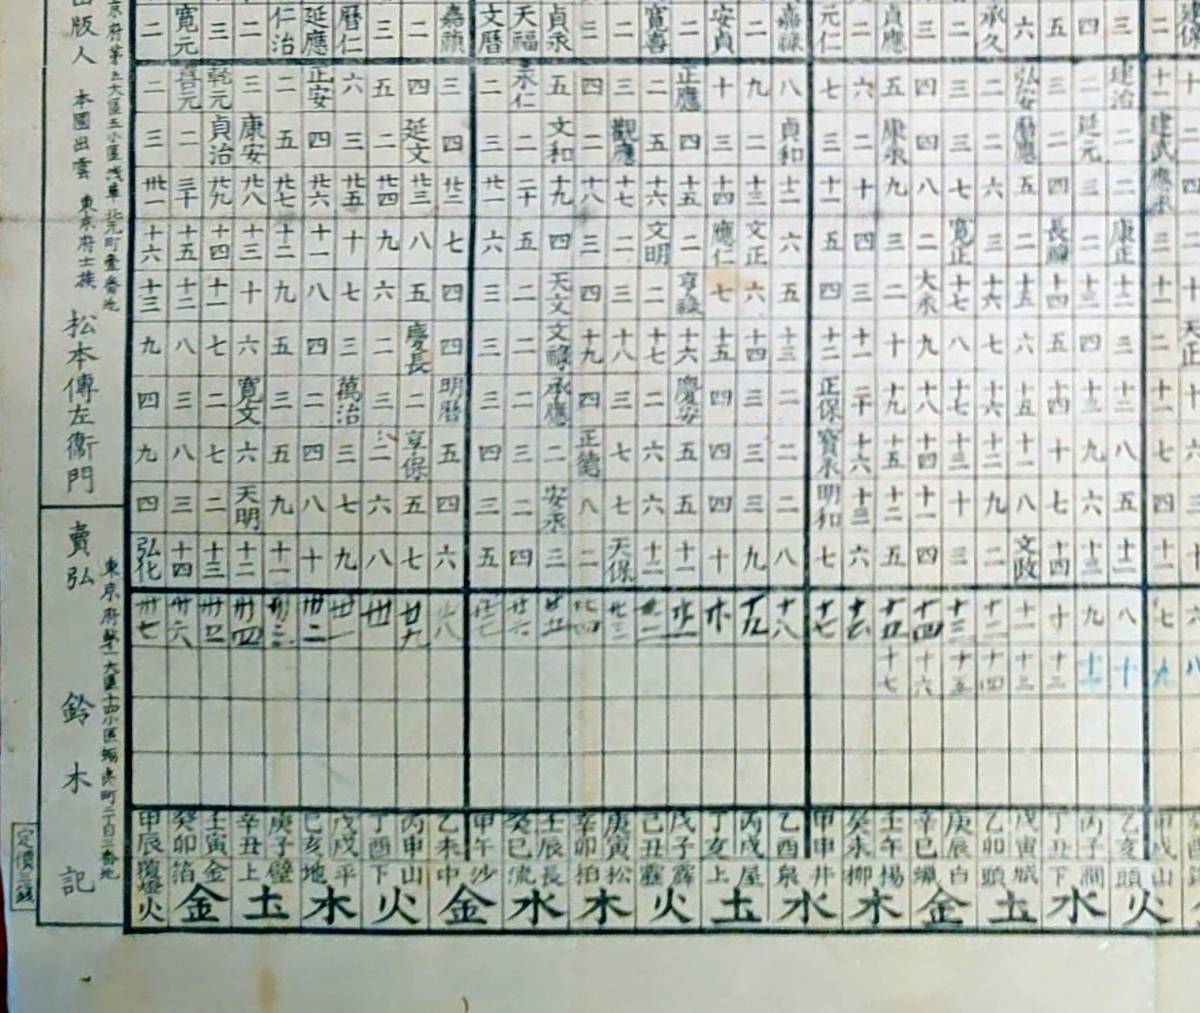 出版人 本國出雲 東京府士族 松本傳左衞門
東京府第五大區五小區浅草北元町壹番地
賣弘 鈴木記
定價三銭
二 寛元 三 二 仁治 延應 暦仁 三 二 嘉禎 文暦 天福 貞永 三 二 寛喜 二 安貞 二 嘉禄 元仁 二 貞應 三 二 承久 六 五 四 三 二 建保
二 嘉元 乾元 三 二 正安 六 五 四 三 二 永仁 五 四 三 二 正應 十 九 八 七 六 五 四 三 二 弘安 三 二 建治 十一 十
三 二 貞治 康安 五 四 三 二 延文 四 三 二 文和 二 觀應 五 四 三 二 貞和 三 二 康永 四 三 二 暦應 二 延元 二 建武 二
卅一 三十 廿九 廿八 廿七 廿六 廿五 廿四 廿三 廿二 廿一 二十 十九 十八 十七 十六 十五 十四 十三 十二 十一 十 九 八 七 六 五 四 三 二 應永 四
十六 十五 十四 十三 十二 十一 十 九 八 七 六 五 四 三 二 文明 二 應仁 文正 六 五 四 三 二 寛正 三 二 長禄 二 康正 三 二
十三 十二 十一 十 九 八 七 六 五 四 三 二 天文 四 三 二 亨禄 七 六 五 四 三 二 大永 十七 十六 十五 十四 十三 十二 十一 十
九 八 七 六 五 四 三 二 慶長 四 三 二 文禄 十九 十八 十七 十六 十五 十四 十三 十二 十一 十 九 八 七 六 五 四 三 二 天正
四 三 二 寛文 三 二 萬治 三 二 明暦 三 二 承應 四 三 二 慶安 四 三 二 正保 二十 十九 十八 十七 十六 十五 十四 十三 十二 十一 十
九 八 七 六 五 四 三 二 亨保 五 四 三 二 正德 七 六 五 四 三 二 寶永 十六 十五 十四 十三 十二 十一 十 九 八 七 六
四 三 二 天明 九 八 七 六 五 四 三 二 安永 八 七 六 五 四 三 二 明和 十三 十二 十一 十 九 八 七 六 五 四 三
弘化 十四 十三 十二 十一 十 九 八 七 六 五 四 三 二 天保 十二 十一 十 九 八 七 六 五 四 三 二 文政 十四 十三 十二 十一 十
卅七 卅六 卅五 卅四 卅三 卅二 卅一 卅 廿九 廿八 廿七 廿六 廿五 廿四 廿三 廿二 廿一 廿 十九 十八 十七 十六 十五 十四 十三 十二 十一 十 九 八 七 六
十七 十六 十五 十四 十三 十二 十一 十 九 八
甲辰 癸卯 壬寅 辛丑 庚子 己亥 戊戌 丁酉 丙申 乙未 甲午 癸巳 壬辰 辛卯 庚寅 己丑 戊子 丁亥 丙戌 乙酉 甲申 癸未 壬午 辛巳 庚辰 乙卯 戊寅 丁丑 丙子 乙亥 甲戌 癸酉
覆燈 箔 金 上 壁 地 平 下 山 中 沙 流 長 柏 松 霹 霹 上 屋 泉 井 柳 楊 蠟 白 頭 城 下 澗 頭 山
火 金 土 木 火 金 水 木 火 土 水 木 金 土 水 火